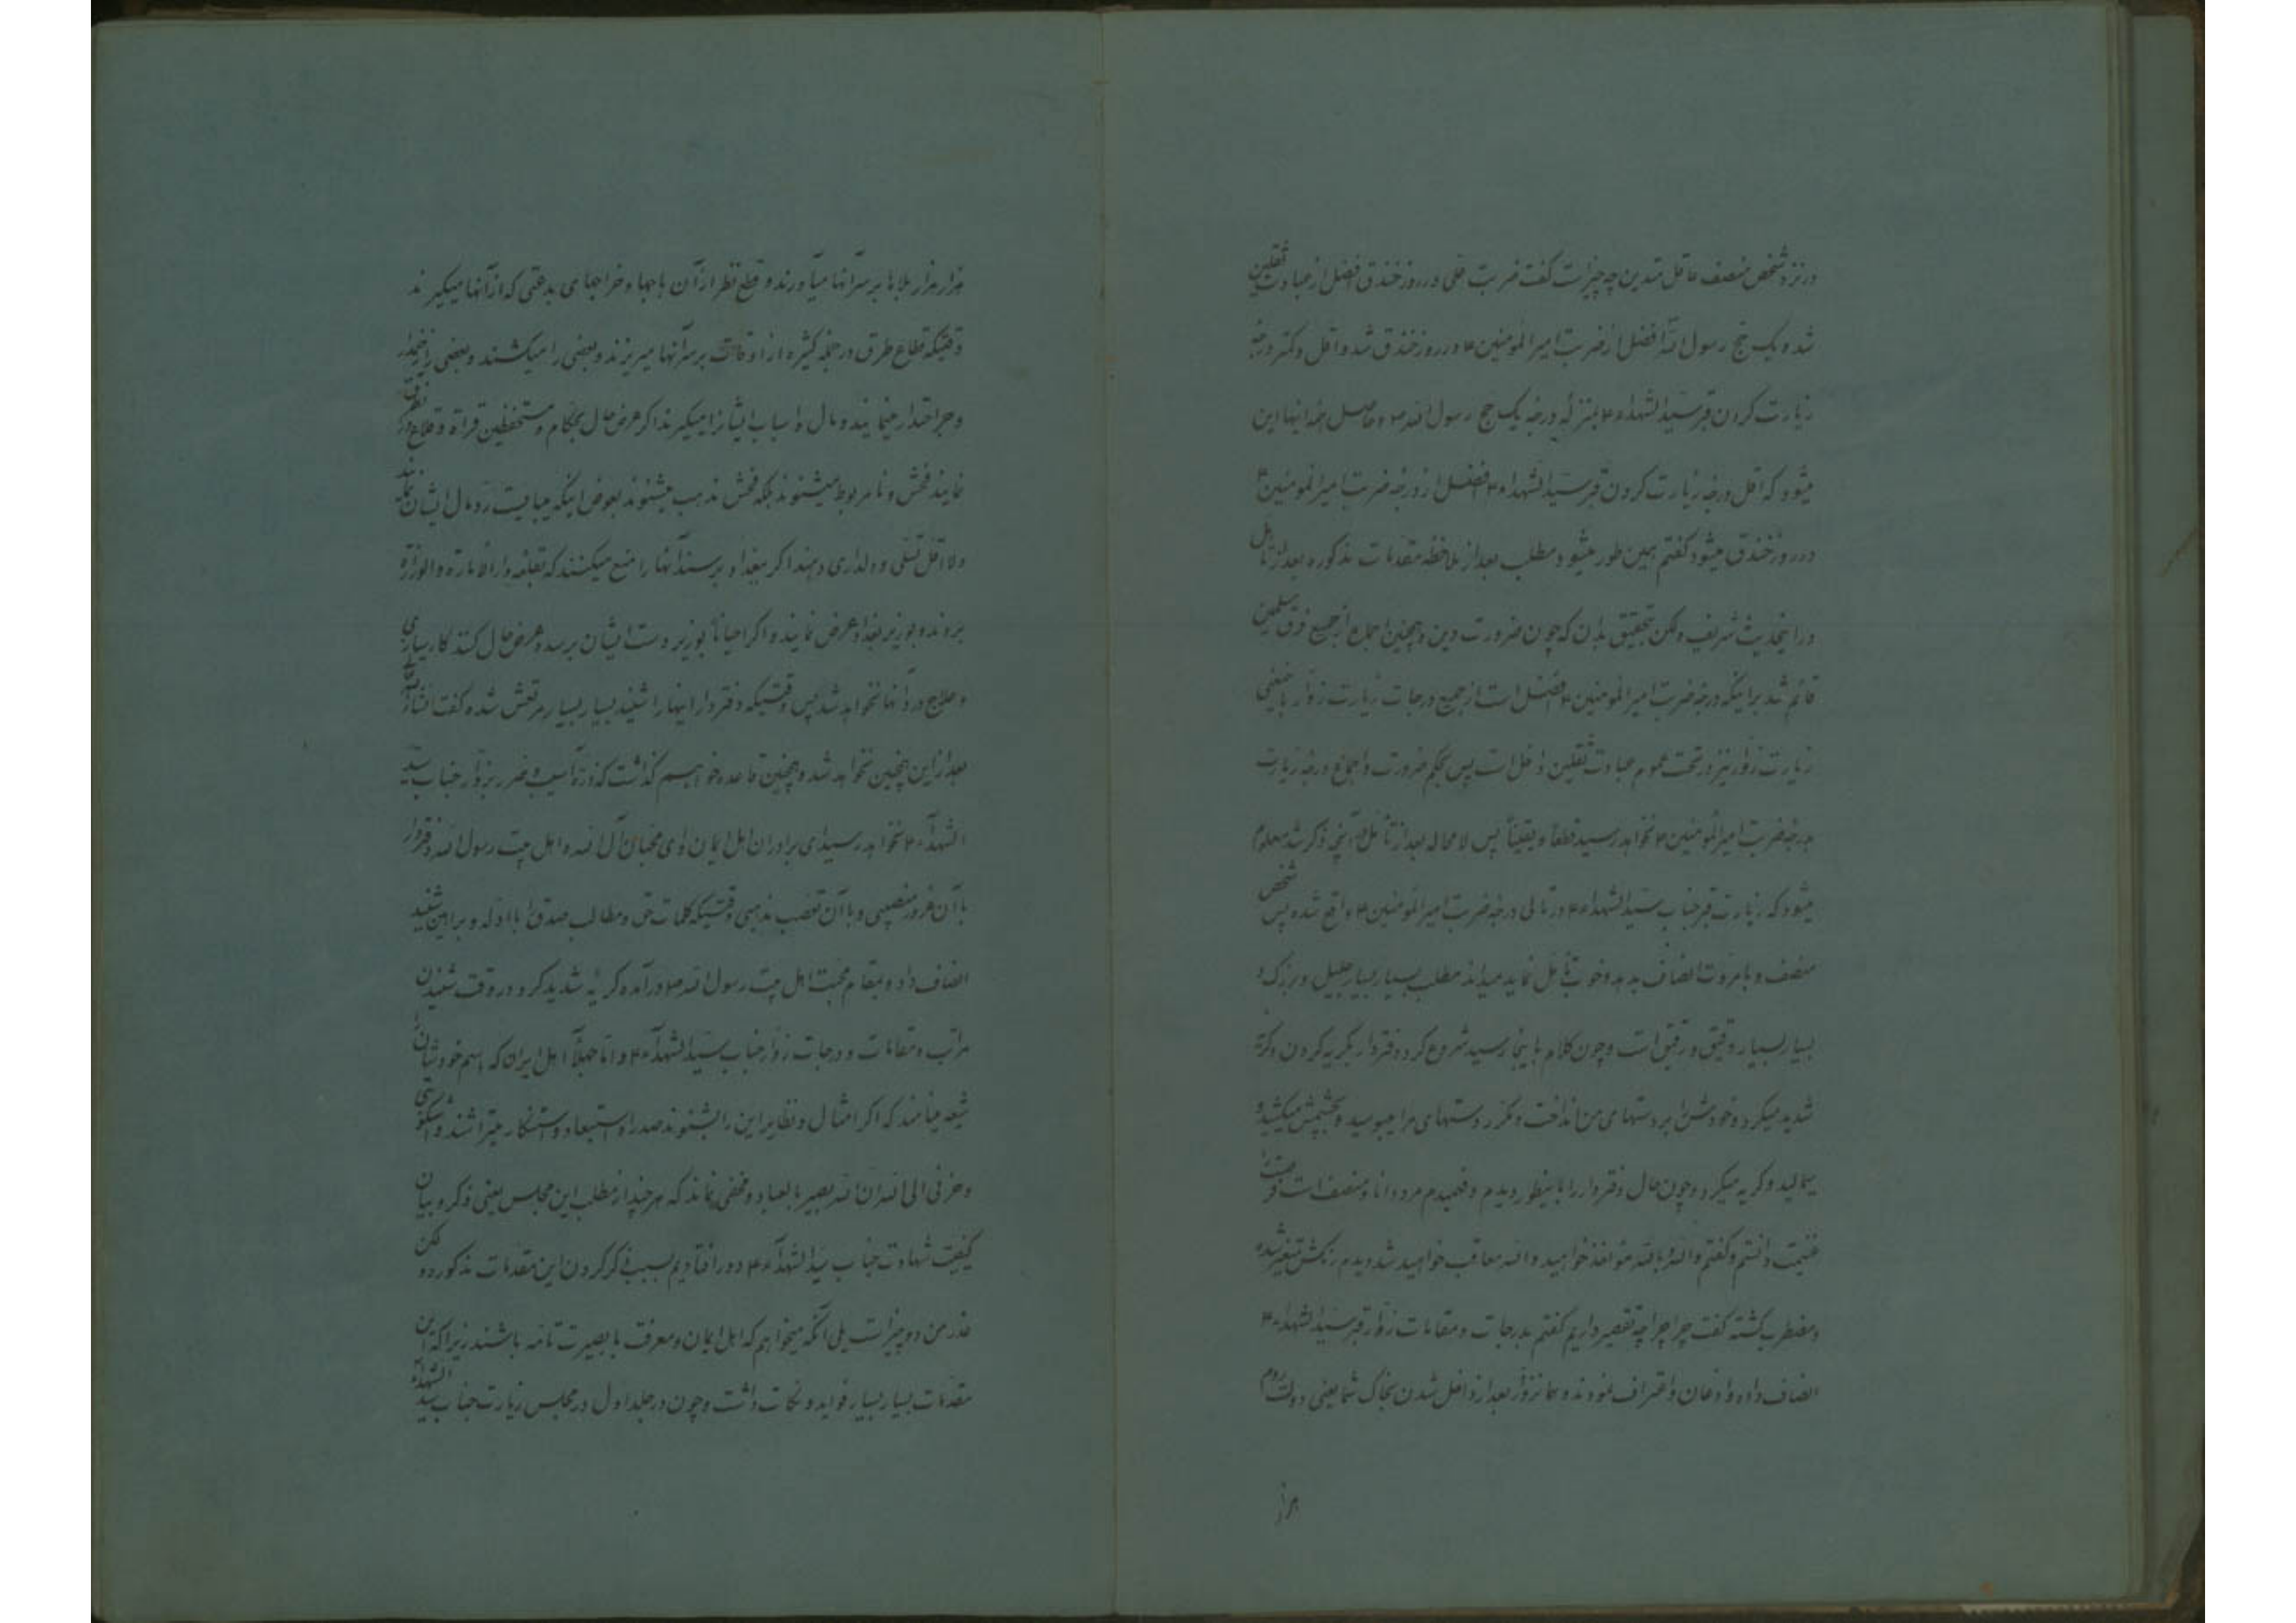 در نزد شخص منصف عاقل متدین چه چیز است گفت ضربت علی در روز خندق افضل از عبادت ثقلین
شد و یک حج رسول الله افضل از ضربت امیر المومنین ۴ در روز خندق شد و اقل و کمتر درجه
زیارت کردن قبر سید الشهداء ۴ بمنزله درجه یک حج رسول الله ص و حاصل همه اینها این
میشود که اقل درجه زیارت کردن قبر سید الشهداء ۴ افضل از درجه ضربت امیر المومنین ۴
در روز خندق میشود گفتم همین طور میشود مطلب بعد از ملاحظه مقدمات مذکوره بعد از تامل
در اینحدیث شریف ولکن تحقیق بدان که چون ضرورت دین و همچنین اجماع از جمیع فرق مسلمین
قائم شد بر اینکه درجه ضربت امیر المومنین ۴ افضل است از جمیع درجات زیارت زوار یا معنی
زیارت زوار نیز در تحت عموم عبادت ثقلین داخل است پس بحکم ضرورت و اجماع درجه زیارت
بدرجه ضربت امیر المومنین ۴ نخواهد رسید قطعا و یقینا پس لامحاله بعد از تامل در آنچه ذکر شد معلوم
میشود که زیارت قبر جناب سید الشهداء ۴ در تالی درجه ضربت امیر المومنین ۴ واقع شده پس شخص
منصف و با مروت انصاف بدهد و خوب تامل نماید میداند مطلب بسیار بسیار جلیل و بزرک و
بسیار بسیار دقیق و رقیق است و چون کلام باینجا رسید شروع کرد دفتردار بگریه کردن و گریه
شدید میکرد و خودش را بر دستهای من انداخت و مکرر دستهای مرا میبوسید و بچشمش میکشید و
میمالید و کریه میکرد و چون حال دفتردار را باینطور دیدم و فهمیدم مرد دانا و منصف است فرصت را
غنیمت دانستم و گفتم والله و بالله مواخذ خواهید و الله معاقب خواهید شد دیدم رنکش متغیر شده
و مضطرب کشته گفت چرا چرا چه تقصیر داریم گفتم بدرجات و مقامات زوار قبر سید الشهداء ۴
انصاف داده و اذعان و اعتراف نمودند و شما بزوار بعد از داخل شدن بخاک شما یعنی دولت روم
هزار
هزار هزار بلاها بر سر آنها میآورند و قطع نظر از آن باجها و خراجهای بدعتی که از آنها میکیرند
وقتیکه قطاع طرق در جمله کثیره از اوقات بر سر آنها میریزند و بعضی را میکشند و بعضی را زخمدار
و جراحتدار مینمایند و مال و اسباب ایشانرا میکیرند اکر عرض حال بحکام و مستحفظین قراء و قلاع و طرق
نمایند فحش و نامربوط میشنوند بلکه فحش مذهب میشنوند بعوض اینکه میبایست رد مال ایشان نمایند
و لا اقل تسلی و دلداری دهند اکر ببغداد برسند آنها را منع میکنند که بقلعه دار الاماره و الوزاره
بروند و بوزیر بغداد عرض نمایند و اکر احیانا بوزیر دست ایشان برسد و عرض حال کنند کارسازی
و علاج درد آنها نخواهد شد پس وقتیکه دفتردار اینها را شنید بسیار بسیار مرتعش شده گفت انشاء الله تعالی
بعد از این چنین نخواهد شد و همچنین قاعده خواهیم گذاشت که ذره آسیب و ضرر بزوار جناب سید
الشهداء ۴ نخواهد رسید ای برادران اهل ایمان و ای محبان آل الله و اهل بیت رسول الله دفتردار
با آن غرور منصبی و با آن تعصب مذهبی وقتیکه کلمات حق و مطالب صدق را با ادله و براهین شنید
انصاف داد و بمقام محبت اهل بیت رسول الله ص درآمد و کریه شدید کرد در وقت شنیدن
مراتب و مقامات و درجات زوار جناب سید الشهداء ۴ و اما جهلاء اهل ایران که اسم خودشان را
شیعه مینامند که اکر امثال و نظایر این را بشنوند صد راه استبعاد و استنکار میتراشند
و حزنی الی الله ان الله بصیر بالعباد و مخفی نماند که هر چند از مطلب این مجلس یعنی ذکر و بیان
کیفیت شهادت جناب سید الشهداء ۴ دور افتادیم بسبب ذکر کردن این مقدمات مذکوره ولکن
عذر من دو چیز است یکی آنکه میخواهم که اهل ایمان و معرفت با بصیرت تامه باشند زیرا که این
مقدمات بسیار بسیار فواید و نکات داشت و چون در جلد اول در مجلس زیارت جناب سید الشهداء